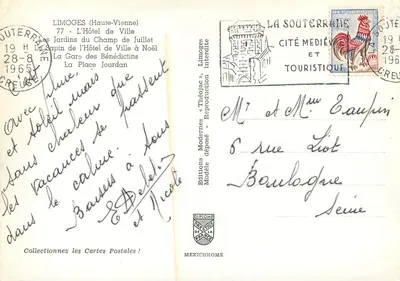 LIMOGES (Haute-Vienne)
77 - L'Hôtel de Ville
Les Jardins du Champ de Juillet
Le Sapin de l'Hôtel de Ville à Noël
La Gare des Bénédictins
La Place Jourdan
19 H
28-8
1965
CREUSE
Avec pluie,
et soleil mais
sans chaleur que
les vacances se passent
dans le calme.
Baisers à tous
et Nicole
Collectionnez les Cartes Postales !
Editions Modernes « Théojac », Limoges
Modèle déposé - Reproduction interdite
MEXICHROME
LA SOUTERRAINE
CITÉ MEDIEVALE
ET
TOURISTIQUE
19 H
28-8
Mr et Mme Taupin
6 rue Liot
Boulogne
Seine